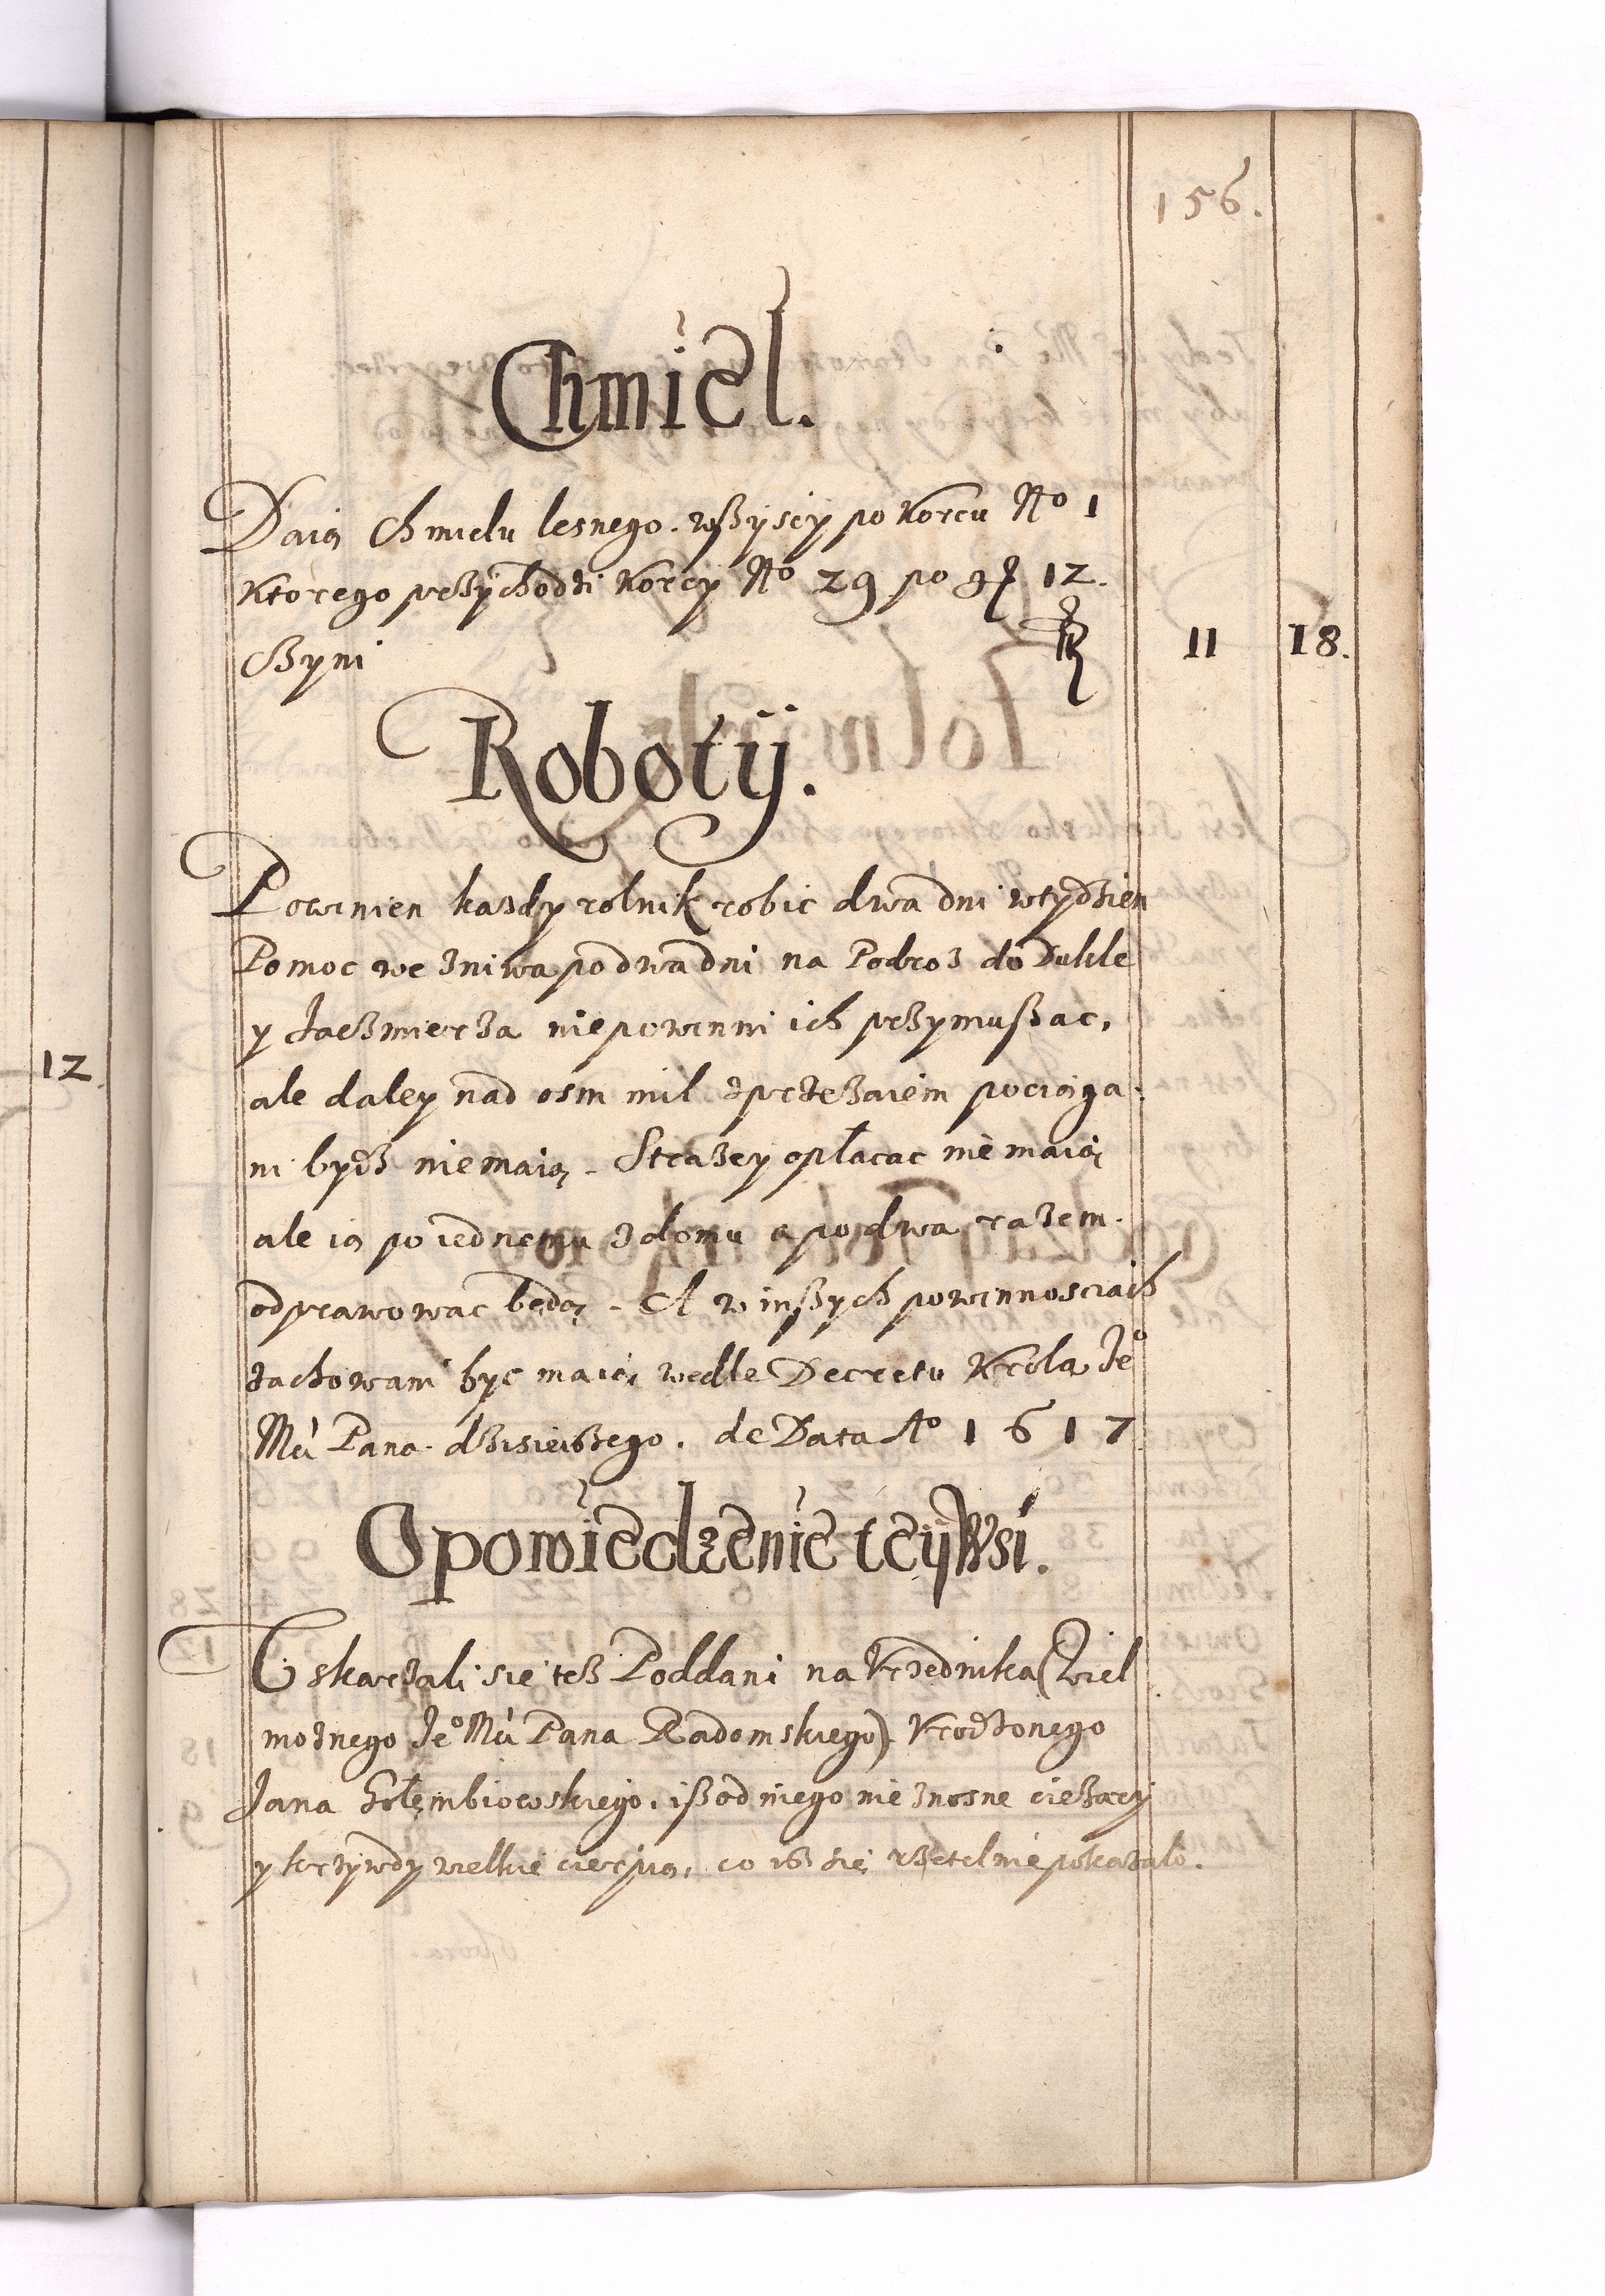 156.
Chmiel.
Daią Chmielu lesnego. wszyscy po Korcu No 1
Ktorego przychodzi Korcy No 29 po gr 12.
Czyni fl 11 18.
Robotij.
Powinien kazdy rolnik robic dwa dni wtydzien
Pomoc we zniwa po dwa dni na Podroz do Dukle
y Jaczmierza nie powinni ich przymuszac,
12
ale daley nad osm mil zprzezaiem pociąga-
ni bydz nie maią. Strazey opłacac nie maią
ale ią po iednemu zdomu a po dwa razem.
odprawowac będą. A w inszych powinnosciach
zachowani byc maią wedle Decretu Krola Je°
Mci Pana dzisieiszego. de Data Ao 1617
Opowiedzenie teij Wsi.
Uskarzali sie tesz Poddani na Vrzednika (Wiel
moznego Je° Mci Pana Radomskiego) Vrodzonego
Jana Gołembiowskiego, isz od niego nie znosne ciezary
y krzywdy wielkie cierpią, co isz sie rzetelnie pokazało.